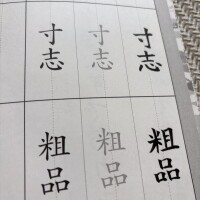 寸志
寸志
寸志
粗品
粗品
粗品